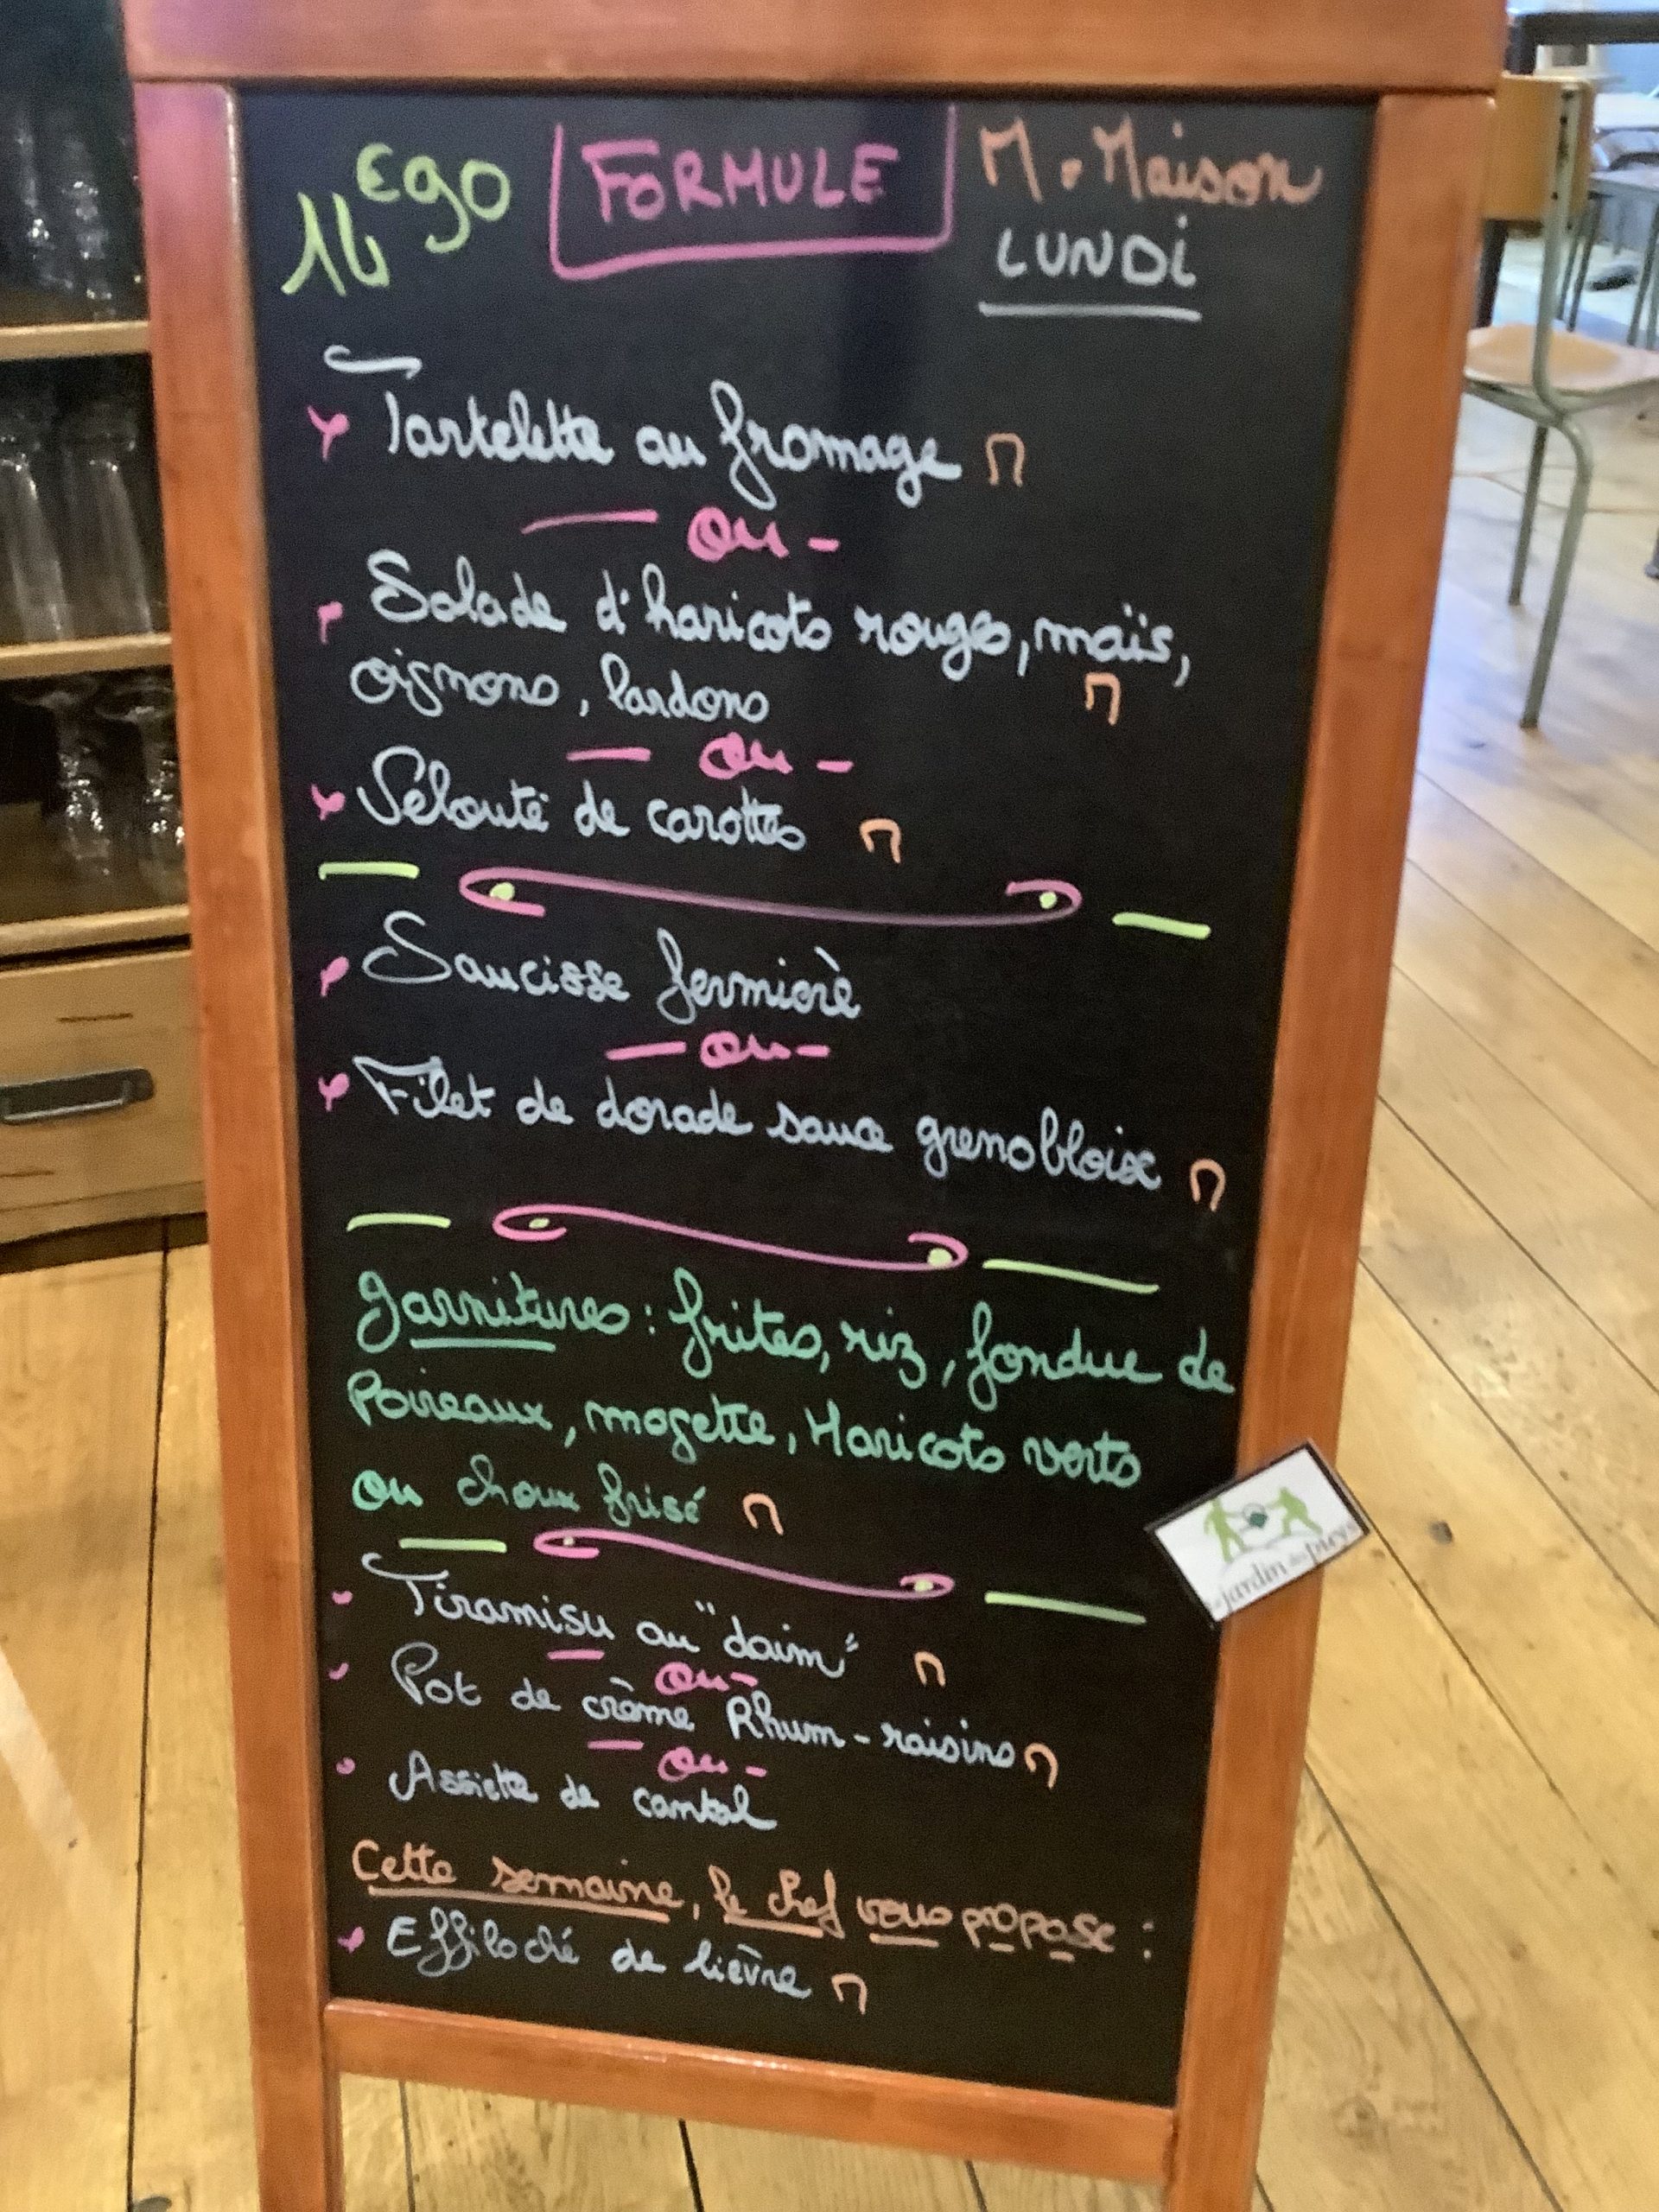 14€90 FORMULE M = Maison
LUNDI
Tartelette au fromage M
- ou -
Salade d'haricots rouges, maïs,
oignons, lardons M
- ou -
Velouté de carottes M
Saucisse fermière
- ou -
Filet de dorade sauce grenobloise M
Garnitures : frites, riz, fondue de
Poireaux, mogette, Haricots verts
ou choux frisé M
Tiramisu au "daim" M
- ou -
Pot de crème Rhum-raisins M
- ou -
Assiette de cantal
Cette semaine, le chef vous propose :
Effiloché de lièvre M
jardin des pizzas